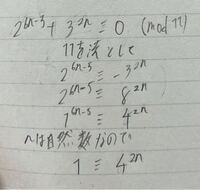 2^{6n-5} + 3^{2n} ≡ 0 (mod 11)
11を法として
2^{6n-5} ≡ -3^{2n}
2^{6n-5} ≡ 8^{2n}
1^{6n-5} ≡ 4^{2n}
nは自然数なので
1 ≡ 4^{2n}